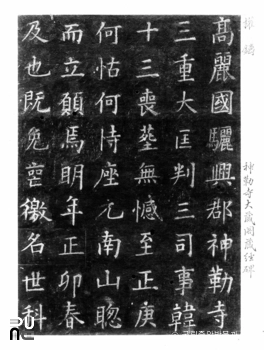 高麗國驪興郡神勒寺
三重大匡判三司事韓
十三喪葬無憾至正庚
何怙何恃座元南山聰
而立願焉明年正卯春
及也既免喪徼名世科
神勒寺大藏閣藏經碑
국립중앙박물관